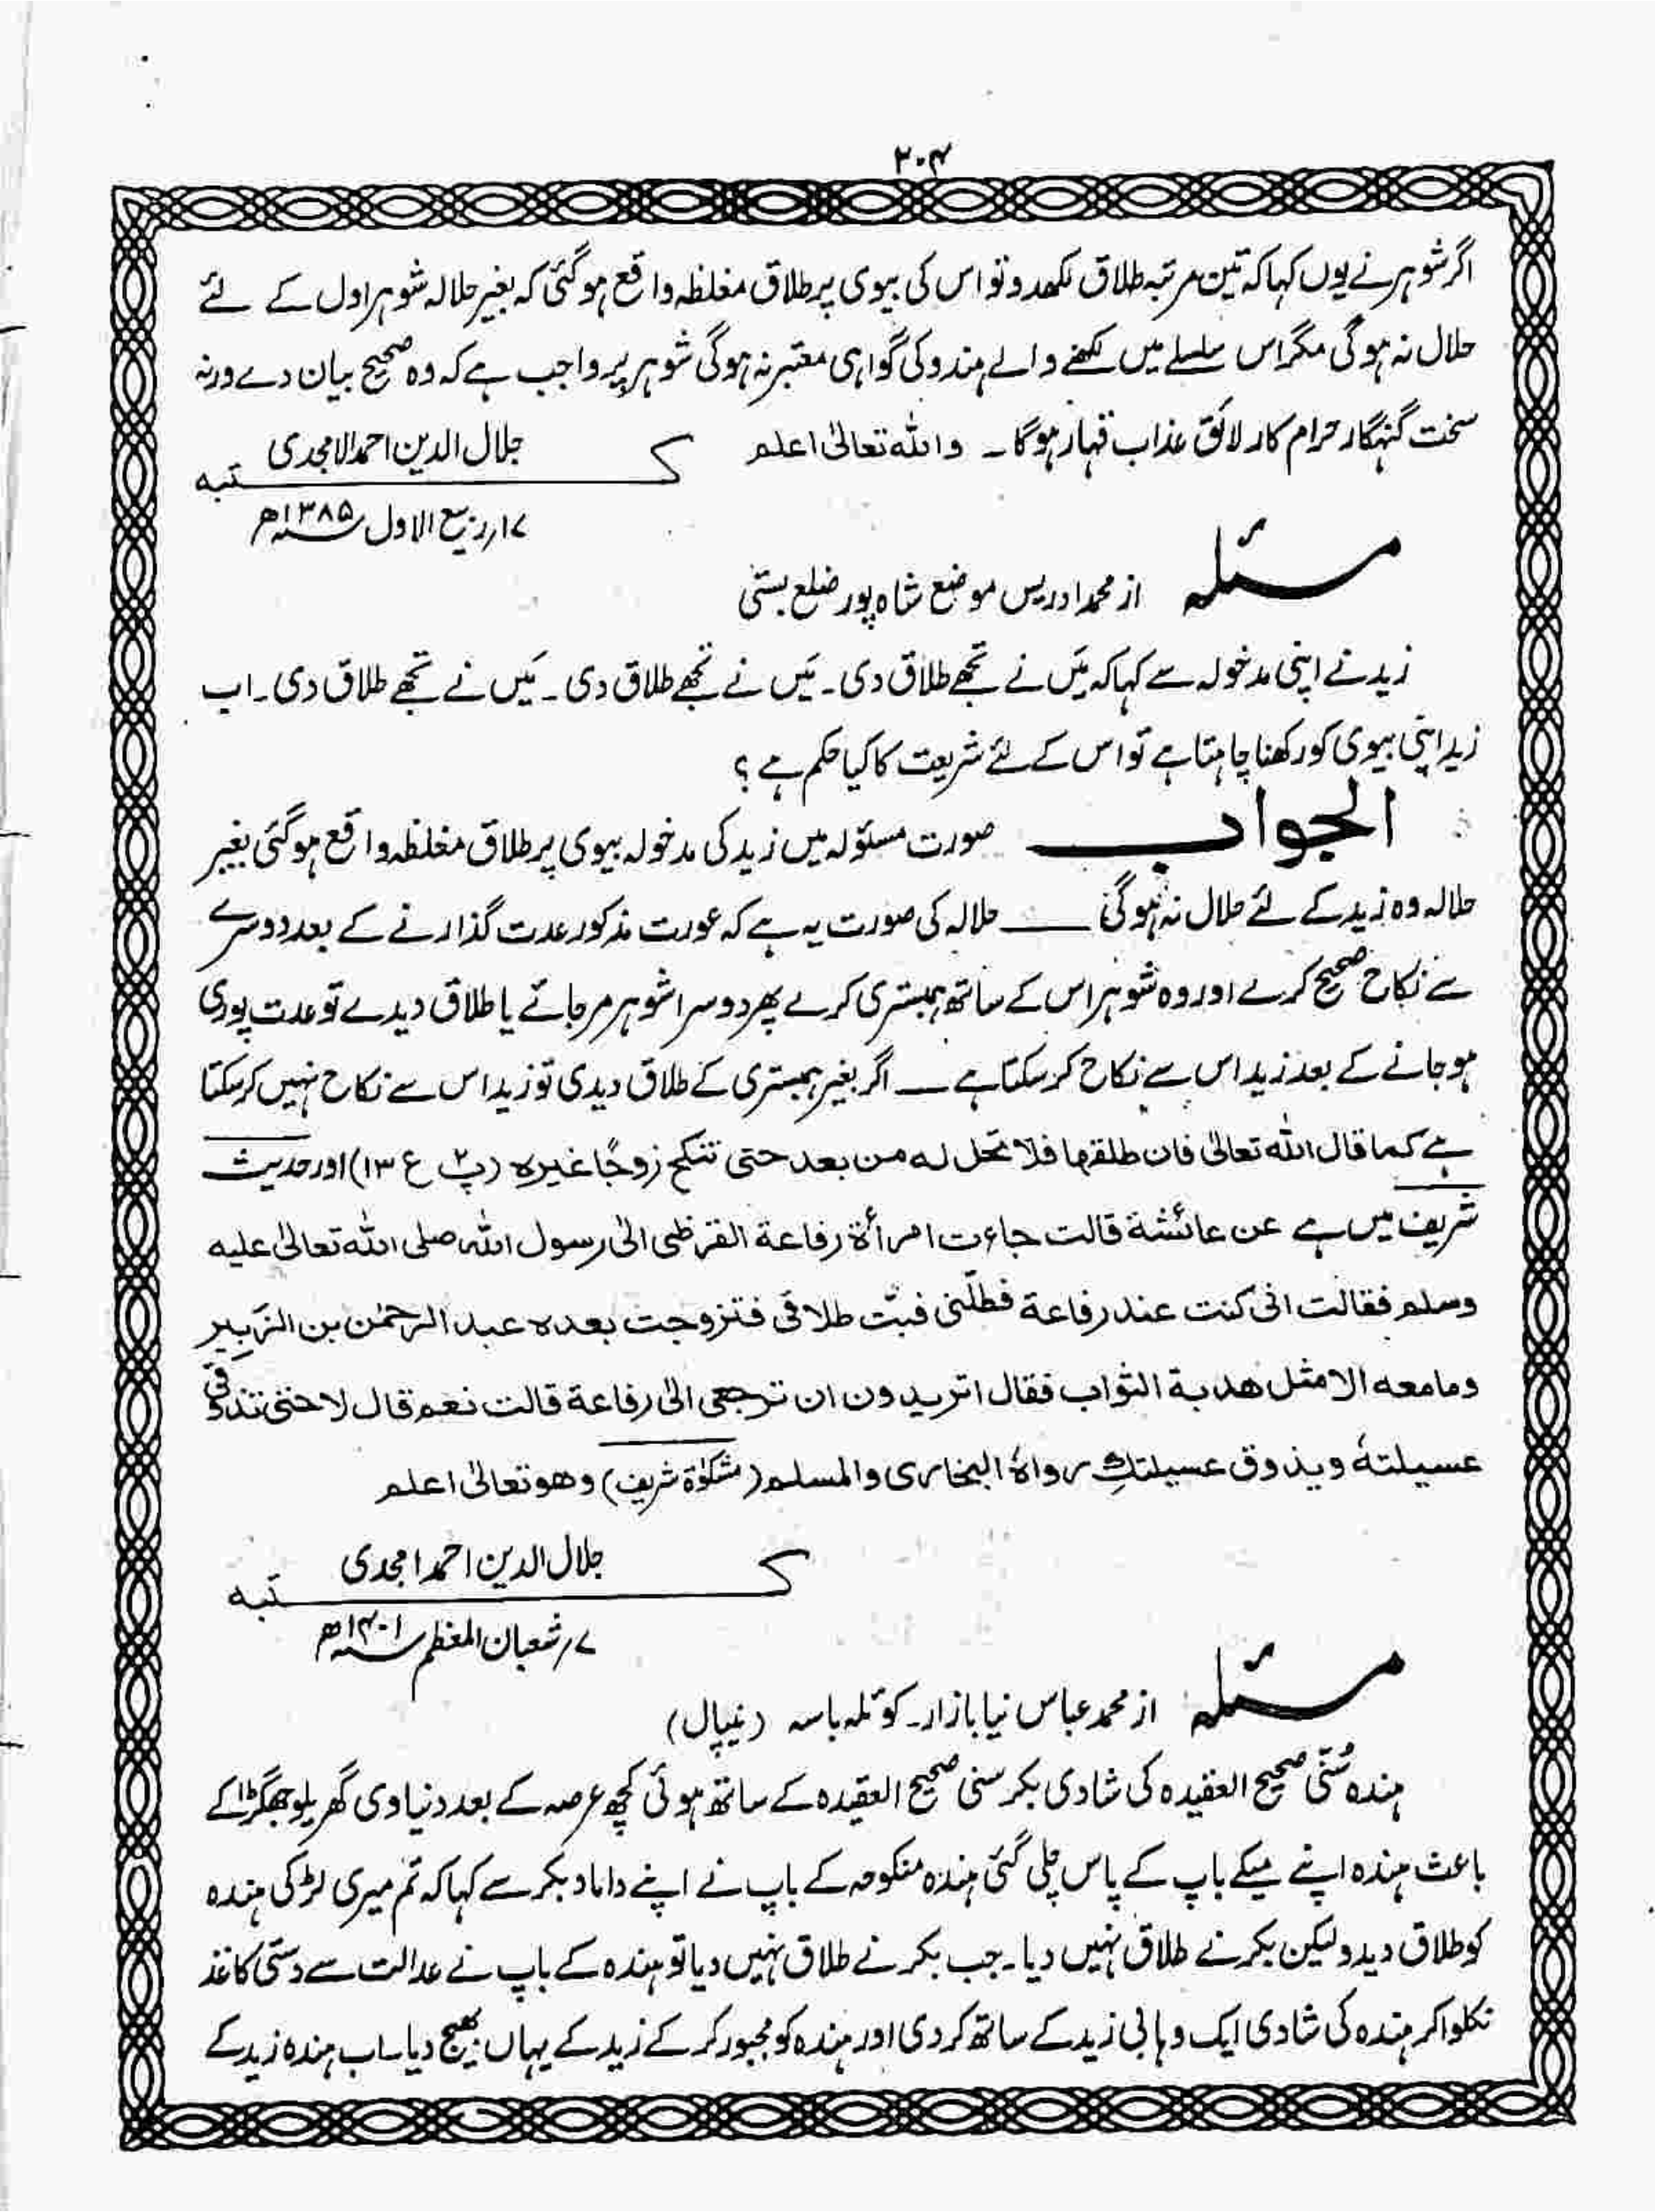 ۳۰۴
اگر شوہر نے یوں کہا کہ تین مرتبہ طلاق لکھدو تو اس کی بیوی پر طلاق مغلظہ واقع ہو گئی کہ بغیر حلالہ شوہر اول کے لئے
حلال نہ ہوگی مگر اس سلسلے میں لکھنے والے ہندو کی گواہی معتبر نہ ہوگی شوہر پر واجب ہے کہ وہ صحیح بیان دے ورنہ
سخت گنہگار حرام کار لائق عذاب قہار ہوگا۔ واللہ تعالیٰ اعلم
جلال الدین احمد الامجدی
کتبہ
۱۷؍ ربیع الاول ۱۳۸۵ھ
مسئلہ از محمد ادریس موضع شاہ پور ضلع بستی
زید نے اپنی مدخولہ سے کہا کہ میں نے تجھے طلاق دی۔ میں نے تجھے طلاق دی۔ میں نے تجھے طلاق دی۔ اب
زید اپنی بیوی کو رکھنا چاہتا ہے تو اس کے لئے شریعت کا کیا حکم ہے؟
الجواب صورت مسئولہ میں زید کی مدخولہ بیوی پر طلاق مغلظہ واقع ہو گئی بغیر
حلالہ وہ زید کے لئے حلال نہ ہوگی ـــــ حلالہ کی صورت یہ ہے کہ عورت مذکور عدت گذارنے کے بعد دوسرے
سے نکاح صحیح کرے اور وہ شوہر اس کے ساتھ ہمبستری کرے پھر دوسرا شوہر مرجائے یا طلاق دیدے تو عدت پوری
ہو جانے کے بعد زید اس سے نکاح کر سکتا ہے ـــ اگر بغیر ہمبستری کے طلاق دیدی تو زید اس سے نکاح نہیں کر سکتا
ہے کما قال اللہ تعالیٰ فان طلقہا فلا تحل لہ من بعد حتی تنکح زوجًا غیرہ (پ ۲ ع ۱۳) اور حدیث
شریف میں ہے عن عائشة قالت جاءت امرأة رفاعة القرظی الیٰ رسول اللہ صلی اللہ تعالیٰ علیہ
وسلم فقالت انی کنت عند رفاعة فطلّقنی فبتّ طلاقی فتزوجت بعدہ عبد الرحمٰن بن الزَبِیر
ومامعه الا مثل هدبة الثواب فقال اتریدون ان ترجعی الیٰ رفاعة قالت نعم قال لا حتی تذوقی
عسیلتهٗ ویذوق عسیلتكِ رواہُ البخاری والمسلم (مشکوٰۃ شریف) وھو تعالیٰ اعلم
جلال الدین احمد امجدی
کتبہ
۷؍ شعبان المعظم ۱۴۰۱ھ
مسئلہ از محمد عباس نیا بازار۔ کوئلہ باسہ (نیپال)
ہندہ سُنّی صحیح العقیدہ کی شادی بکر سنی صحیح العقیدہ کے ساتھ ہوئی کچھ عرصہ کے بعد دنیاوی گھریلو جھگڑا کے
باعث ہندہ اپنے میکے باپ کے پاس چلی گئی ہندہ منکوحہ کے باپ نے اپنے داماد بکر سے کہا کہ تم میری لڑکی ہندہ
کو طلاق دیدو لیکن بکر نے طلاق نہیں دیا۔ جب بکر نے طلاق نہیں دیا تو ہندہ کے باپ نے عدالت سے دستی کاغذ
نکلوا کر ہندہ کی شادی ایک وہابی زید کے ساتھ کر دی اور ہندہ کو مجبور کر کے زید کے یہاں بھیج دیا۔ اب ہندہ زید کے